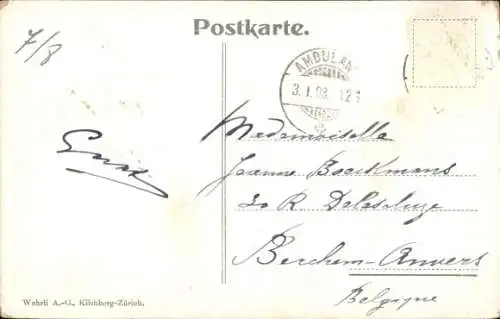 7/8
Postkarte.
AMBULAN
3. I. 08. 12
Mademoiselle
Jeanne Boeckmans
R Delescluze
Berchem-Anvers
Belgique
Wehrli A.-G., Kilchberg-Zürich.